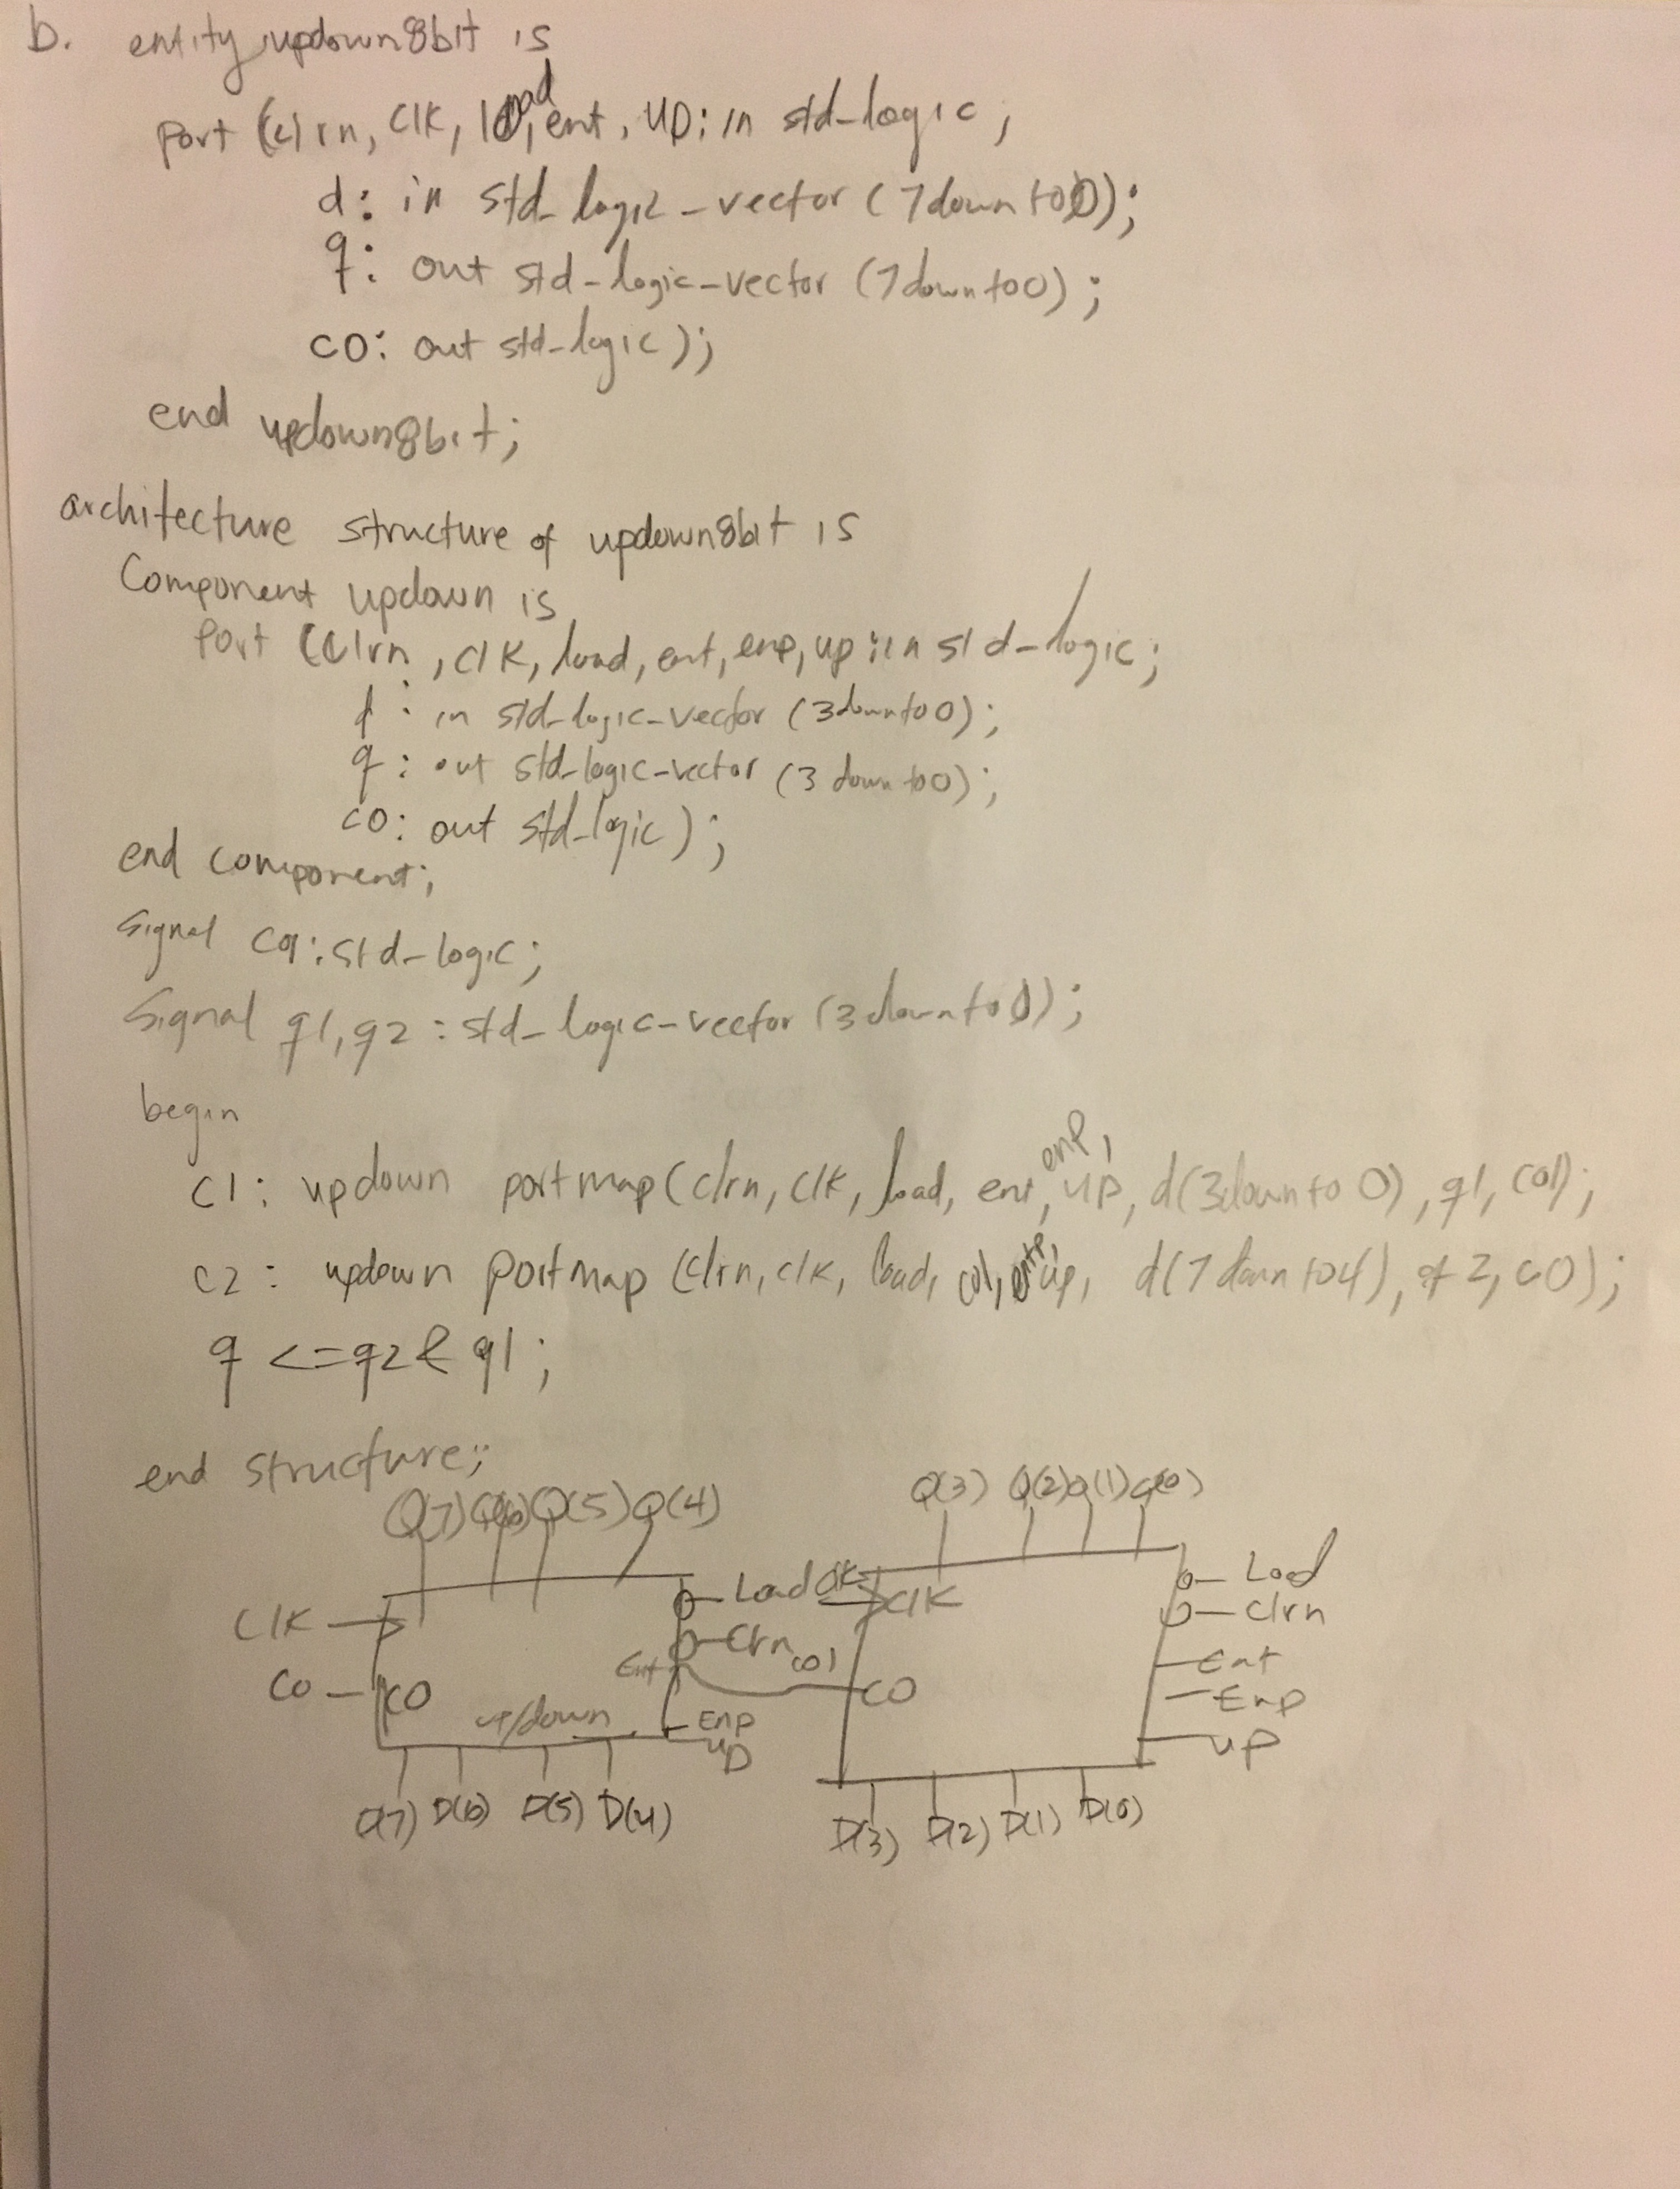 b. entity updown8bit is
port (clrn, clk, load, ent, up: in std-logic;
d: in std-logic-vector (7 downto 0);
q: out std-logic-vector (7 downto 0);
co: out std-logic);
end updown8bit;
architecture structure of updown8bit is
Component updown is
port (clrn, clk, load, ent, enp, up: in std-logic;
d: in std-logic-vector (3 downto 0);
q: out std-logic-vector (3 downto 0);
co: out std-logic);
end component;
Signal co1: std-logic;
Signal q1, q2: std-logic-vector (3 downto 0);
begin
C1: updown portmap (clrn, clk, load, ent, enp, up, d(3 downto 0), q1, co1);
C2: updown portmap (clrn, clk, load, co1, up, d(7 downto 4), q2, co);
q <= q2 & q1;
end structure;
Q(7) Q(6) Q(5) Q(4) Q(3) Q(2) Q(1) Q(0)
Load Clk Load
Clk Clk Clrn
Clrn co1
Ent Ent
Co CO CO Enp
up/down Enp
up up
D(7) D(6) D(5) D(4) D(3) D(2) D(1) D(0)